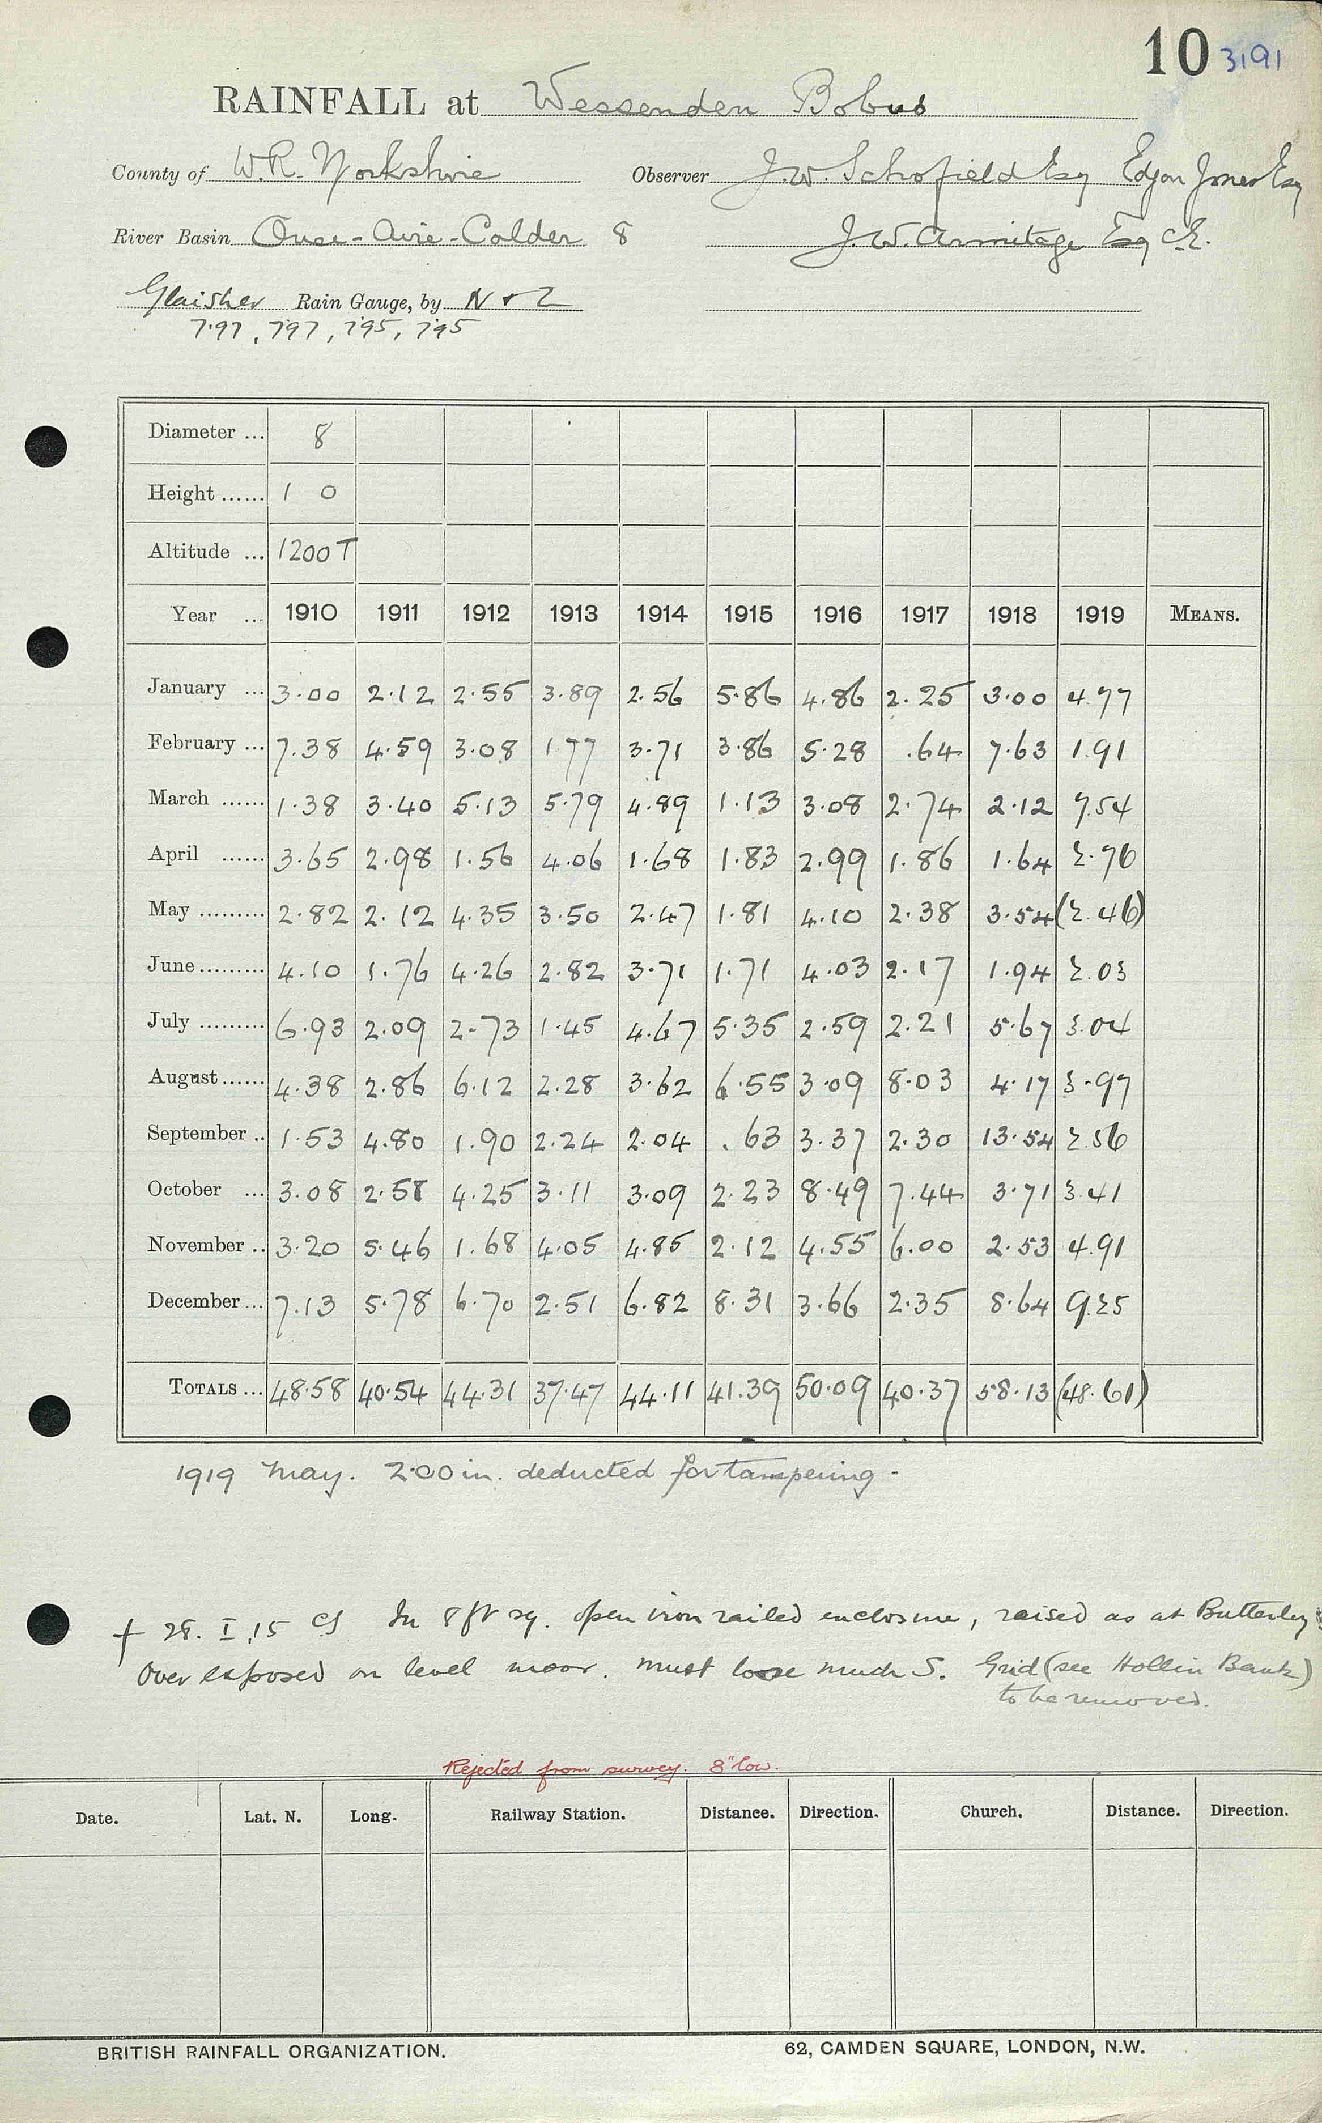 10 3191
RAINFALL at Wessenden Bobus
County of W.R. Yorkshire Observer J.W. Schofield Esq Edgar Jones Esq
River Basin Ouse-Aire-Calder 8 J.W. Armitage Esq C.E.
Glaisher Rain Gauge, by N & Z
7.97, 797, 795, 795
Diameter ... 8
Height ...... 1 0
Altitude ... 1200 T
Year ... 1910 1911 1912 1913 1914 1915 1916 1917 1918 1919 MEANS.
January ... 3.00 2.12 2.55 3.89 2.56 5.86 4.86 2.25 3.00 4.77
February ... 7.38 4.59 3.08 1.77 3.71 3.86 5.28 .64 7.63 1.91
March ...... 1.38 3.40 5.13 5.79 4.89 1.13 3.08 2.74 2.12 7.54
April ...... 3.65 2.98 1.56 4.06 1.68 1.83 2.99 1.86 1.64 2.76
May ......... 2.82 2.12 4.35 3.50 2.47 1.81 4.10 2.38 3.54 (2.46)
June ......... 4.10 1.76 4.26 2.82 3.71 1.71 4.03 2.17 1.94 2.03
July ......... 6.93 2.09 2.73 1.45 4.67 5.35 2.59 2.21 5.67 3.04
August ...... 4.38 2.86 6.12 2.28 3.62 6.55 3.09 8.03 4.17 3.97
September .. 1.53 4.80 1.90 2.24 2.04 .63 3.37 2.30 13.54 2.56
October ... 3.08 2.58 4.25 3.11 3.09 2.23 8.49 7.44 3.71 3.41
November .. 3.20 5.46 1.68 4.05 4.85 2.12 4.55 6.00 2.53 4.91
December ... 7.13 5.78 6.70 2.51 6.82 8.31 3.66 2.35 8.64 9.25
TOTALS ... 48.58 40.54 44.31 37.47 44.11 41.39 50.09 40.37 58.13 (48.61)
1919 May. 2.00 in. deducted for tampering -
+ 28. I. 15 In 8 ft sq. open iron railed enclosure, raised as at Butterley
Over exposed on level moor. Must loose much S. Grid (see Hollin Bank)
to be removed.
Rejected from survey. 8" low.
Date. Lat. N. Long. Railway Station. Distance. Direction. Church. Distance. Direction.
BRITISH RAINFALL ORGANIZATION. 62, CAMDEN SQUARE, LONDON, N.W.